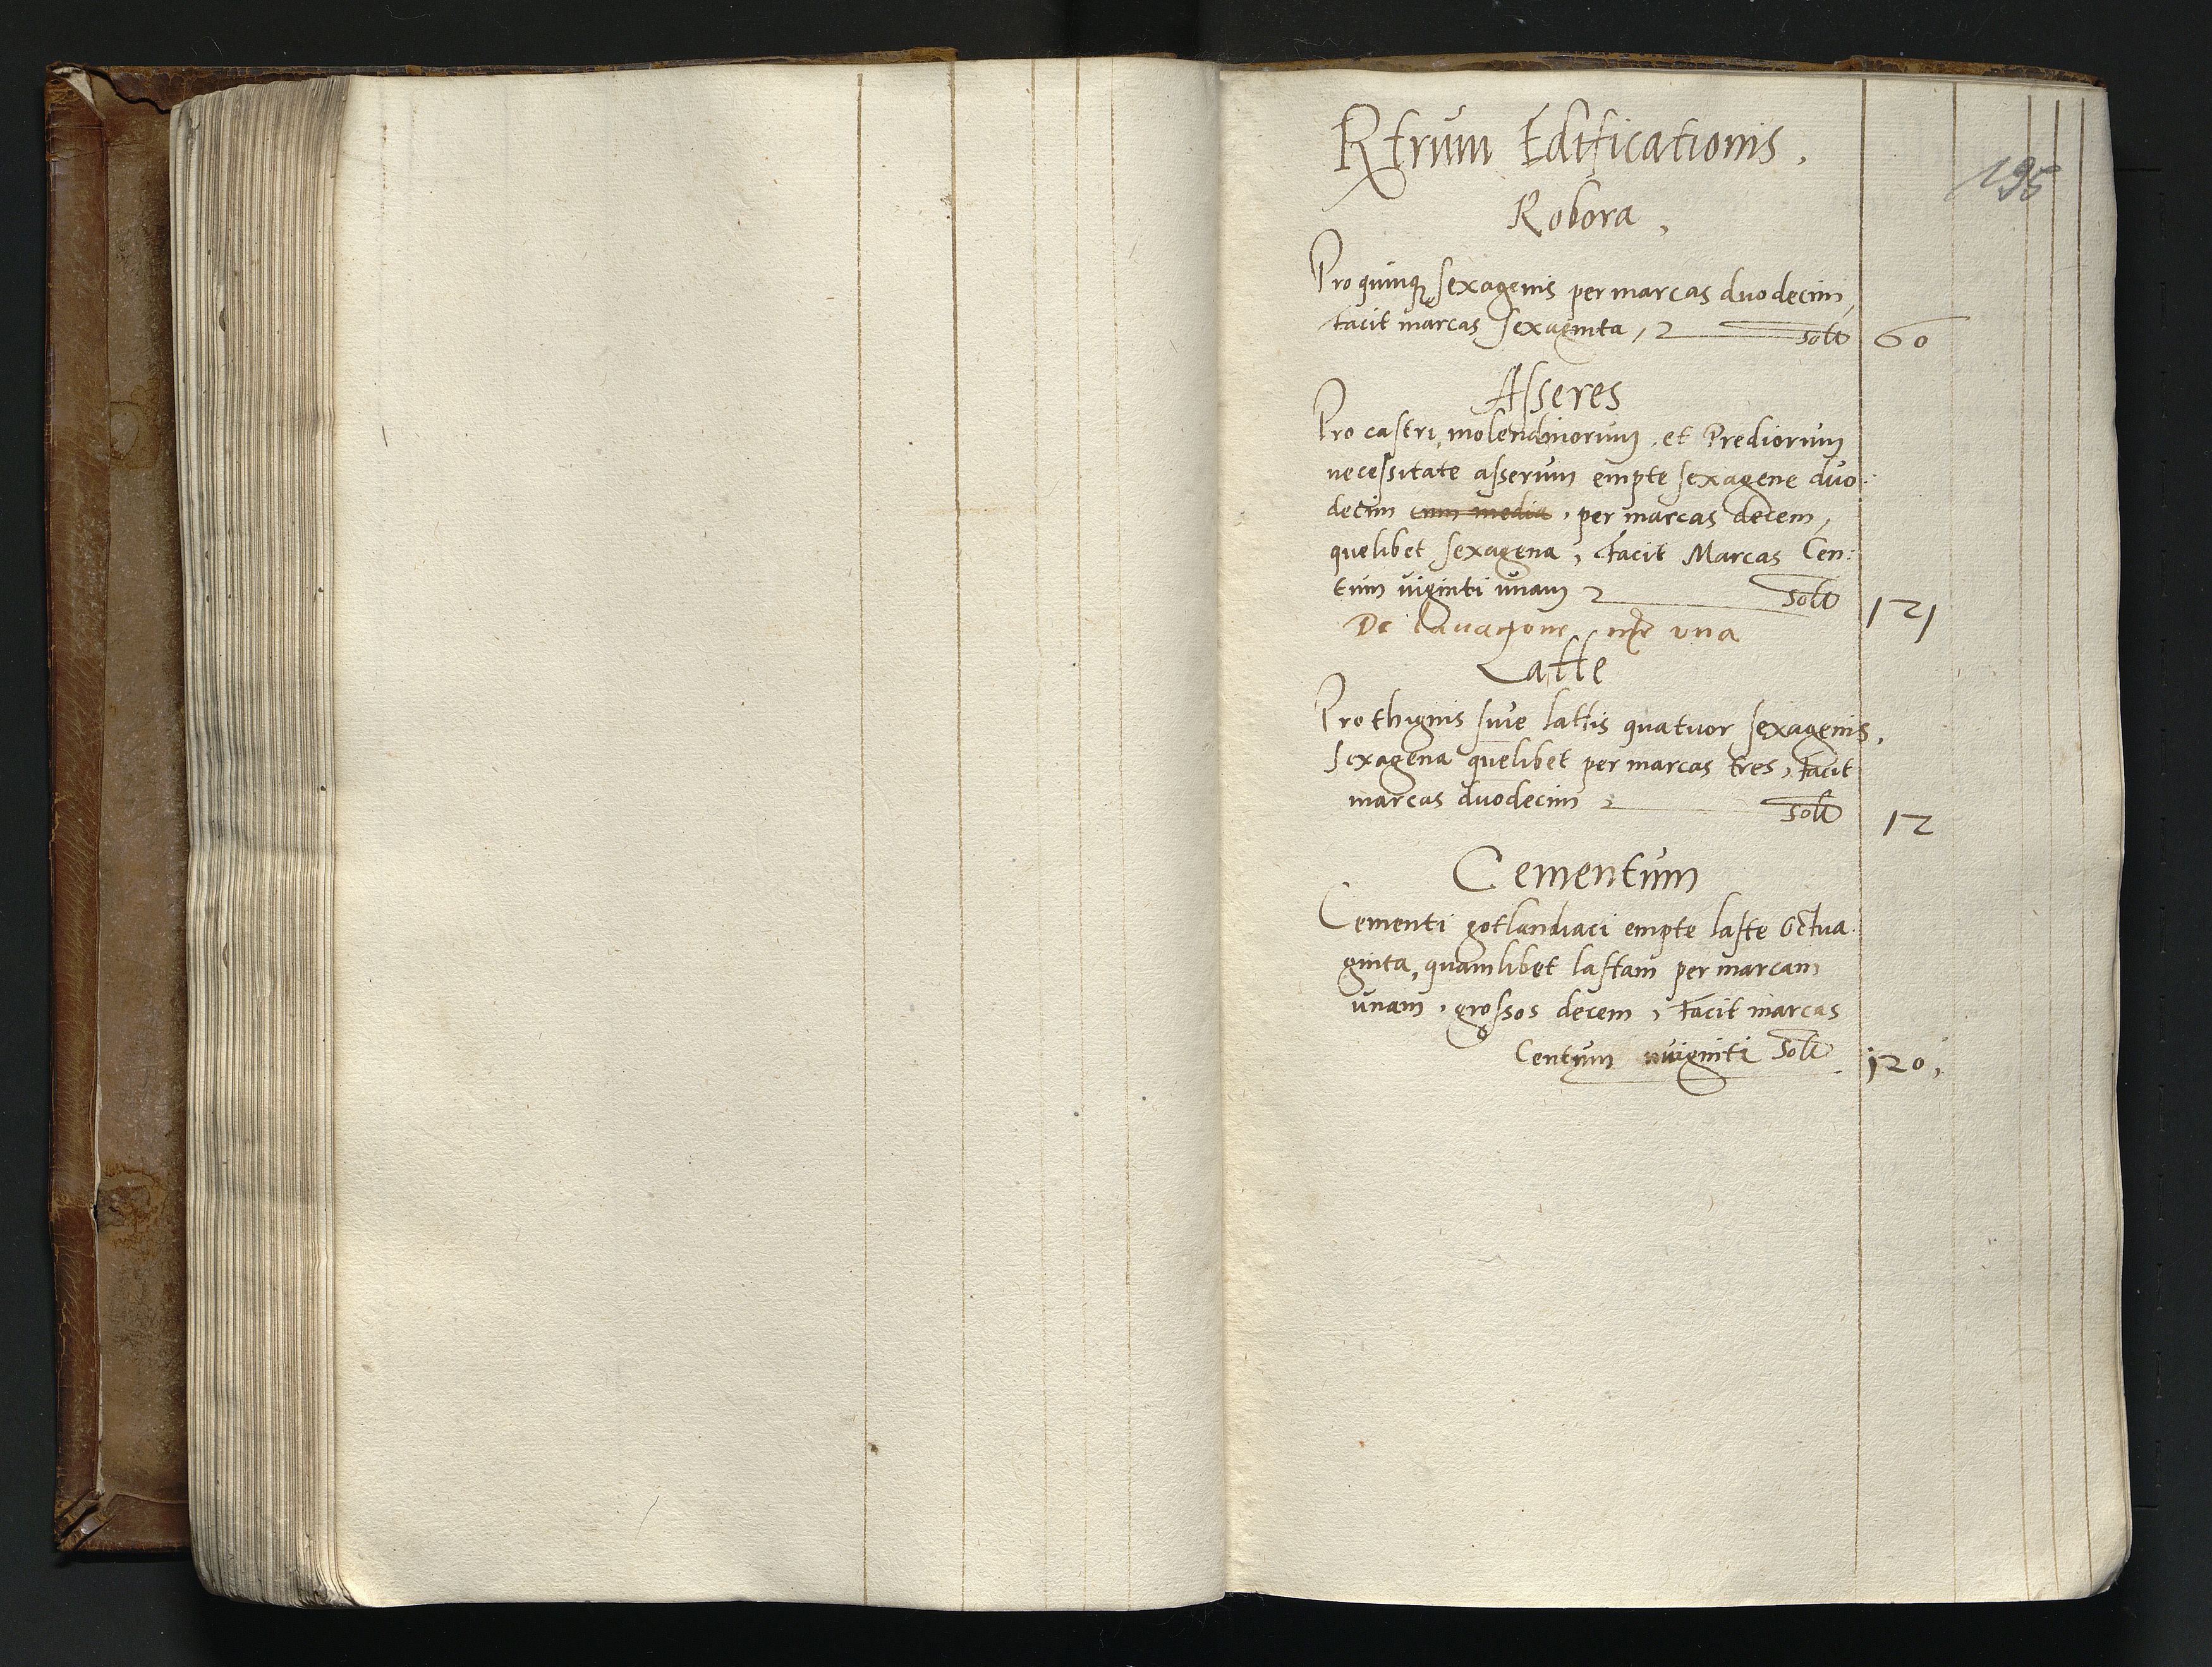 195
Rerum Edificationis.
Robora,
Pro quinq sexagenis per marcas duodecim,
facit marcas sexaginta, solt 60
Asseres
Pro castri, molendinorum, et Prediorum
necessitate asserum empte sexagene duo:
decim cum media, per marcas decem,
quelibet sexagena, facit Marcas Cen:
tum viginti unam solt 121
De una
Latte
Pro thignis sive lattis quatuor sexagenis,
Sexagena quelibet per marcas tres, facit
marcas duodecim solt 12
Cementum
Cementi gotlandiaci empte laste Octua
ginta, quamlibet lastam per marcam
unam, grossos decem, facit marcas
Centum viginti solt 120,